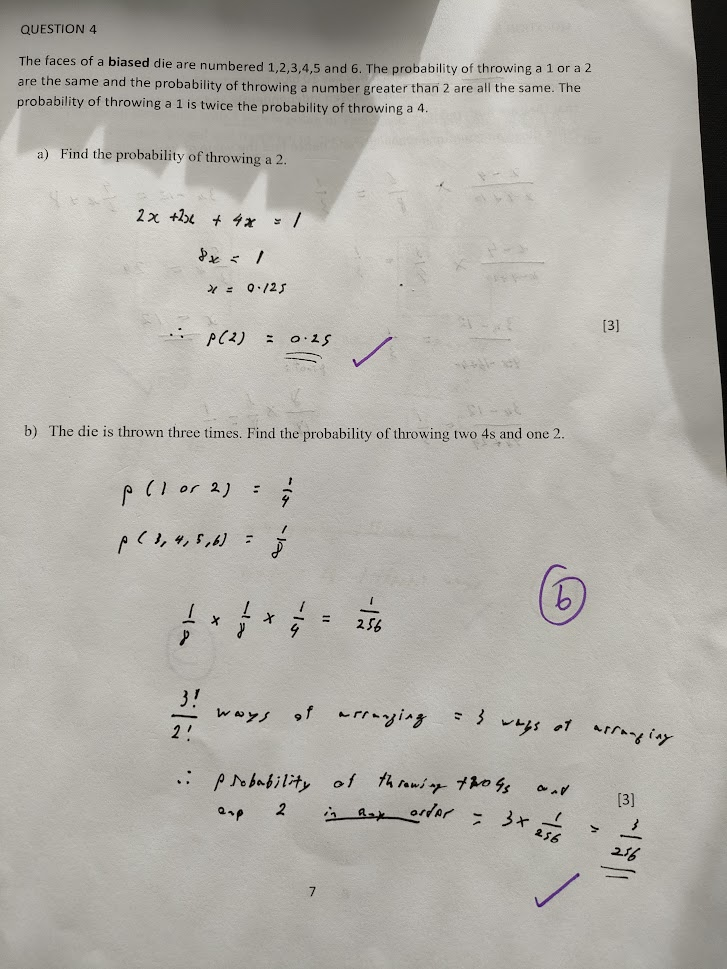 QUESTION 4
The faces of a biased die are numbered 1,2,3,4,5 and 6. The probability of throwing a 1 or a 2
are the same and the probability of throwing a number greater than 2 are all the same. The
probability of throwing a 1 is twice the probability of throwing a 4.
a) Find the probability of throwing a 2.
2x +2x + 4x = 1
8x = 1
x = 0.125
∴ P(2) = 0.25
[3]
b) The die is thrown three times. Find the probability of throwing two 4s and one 2.
p (1 or 2) = 1/4
p (3, 4, 5, 6) = 1/8
6
1/8 x 1/8 x 1/4 = 1/256
3!/2! ways of arranging = 3 ways of arranging
∴ probability of throwing two 4s and
[3]
one 2 in any order = 3 x 1/256 = 3/256
7